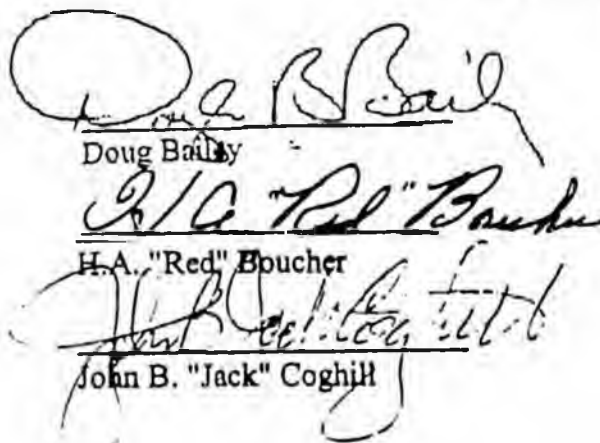 Doug B Baily
Doug Bailey
H A "Red" Boucher
H.A. "Red" Boucher
John B. "Jack" Coghill